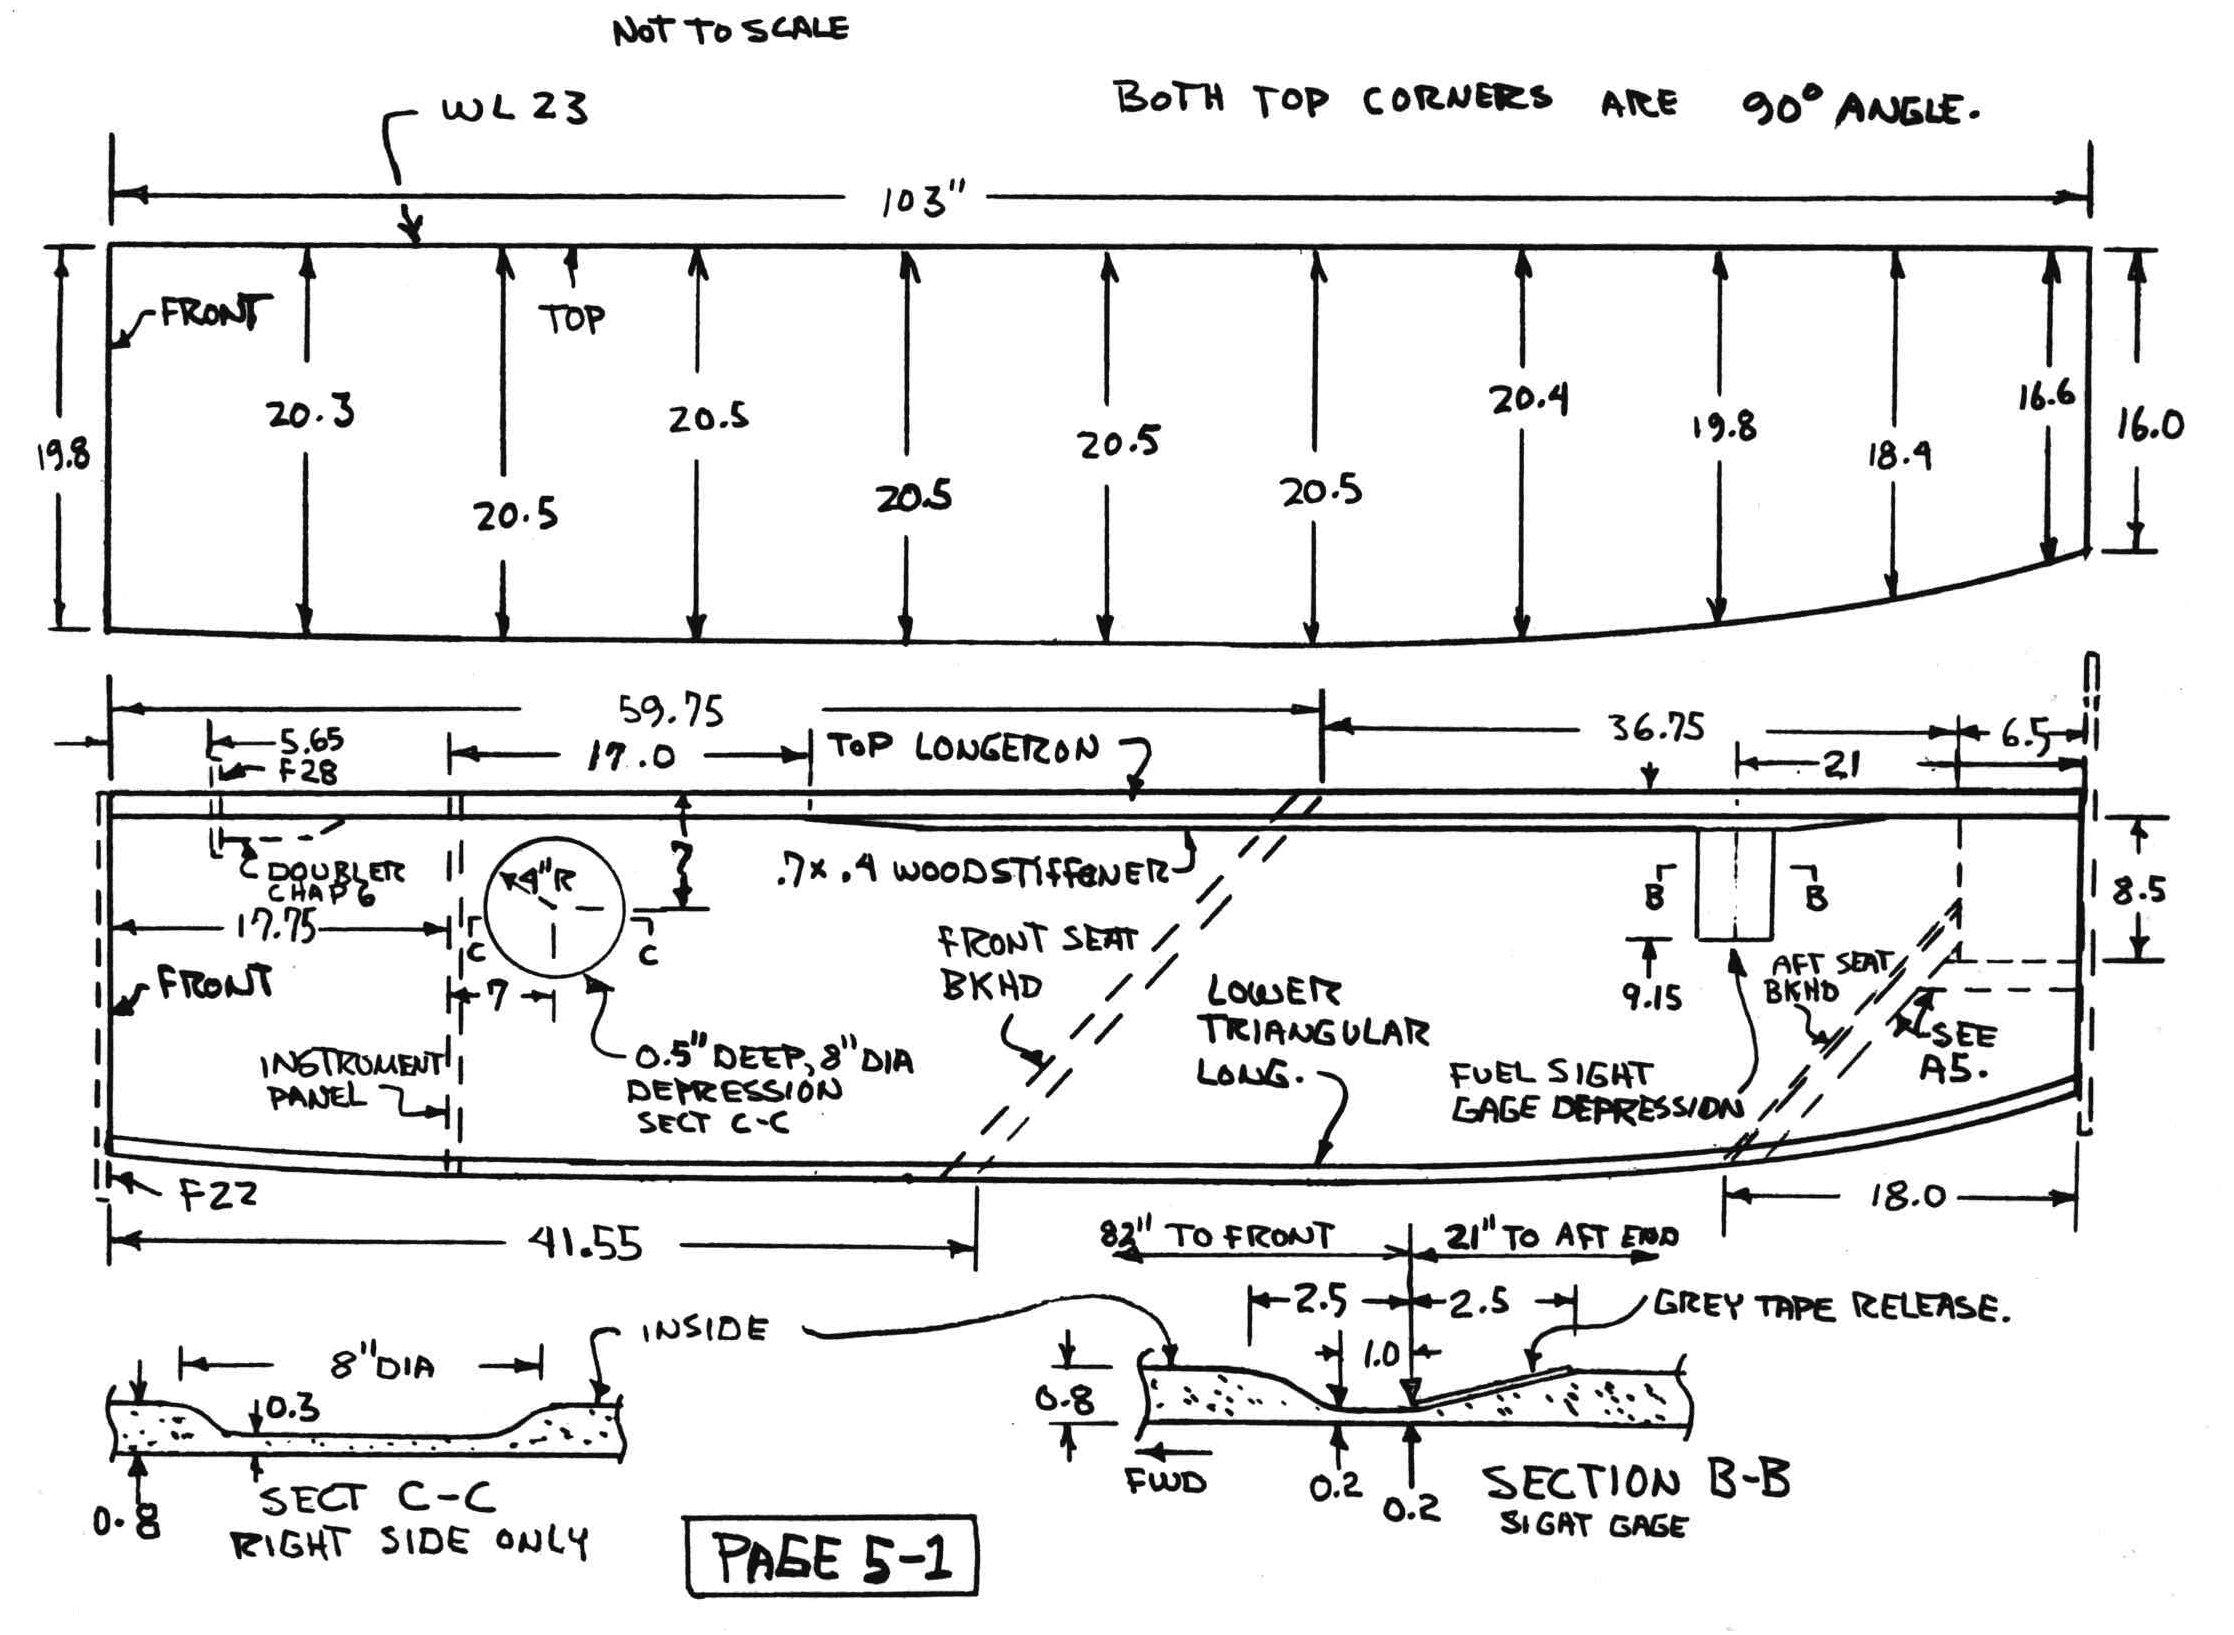 NOT TO SCALE
WL 23
BOTH TOP CORNERS ARE 90° ANGLE.
103"
FRONT
TOP
19.8
20.3
20.5
20.5
20.5
20.5
20.5
20.4
19.8
18.4
16.6
16.0
59.75
36.75
6.5
5.65
F28
17.0
TOP LONGERON
21
DOUBLER
CHAP 6
4"R
7
.7x .4 WOOD STIFFENER
B
B
8.5
17.75
C
C
FRONT SEAT
BKHD
AFT SEAT
BKHD
9.15
FRONT
7
LOWER
TRIANGULAR
LONG.
SEE
A5.
INSTRUMENT
PANEL
0.5" DEEP, 8" DIA
DEPRESSION
SECT C-C
FUEL SIGHT
GAGE DEPRESSION
F22
18.0
41.55
82" TO FRONT
21" TO AFT END
2.5
2.5
GREY TAPE RELEASE.
INSIDE
8" DIA
1.0
0.3
0.8
0.8
FWD
0.2
0.2
SECT C-C
RIGHT SIDE ONLY
SECTION B-B
SIGAT GAGE
PAGE 5-1